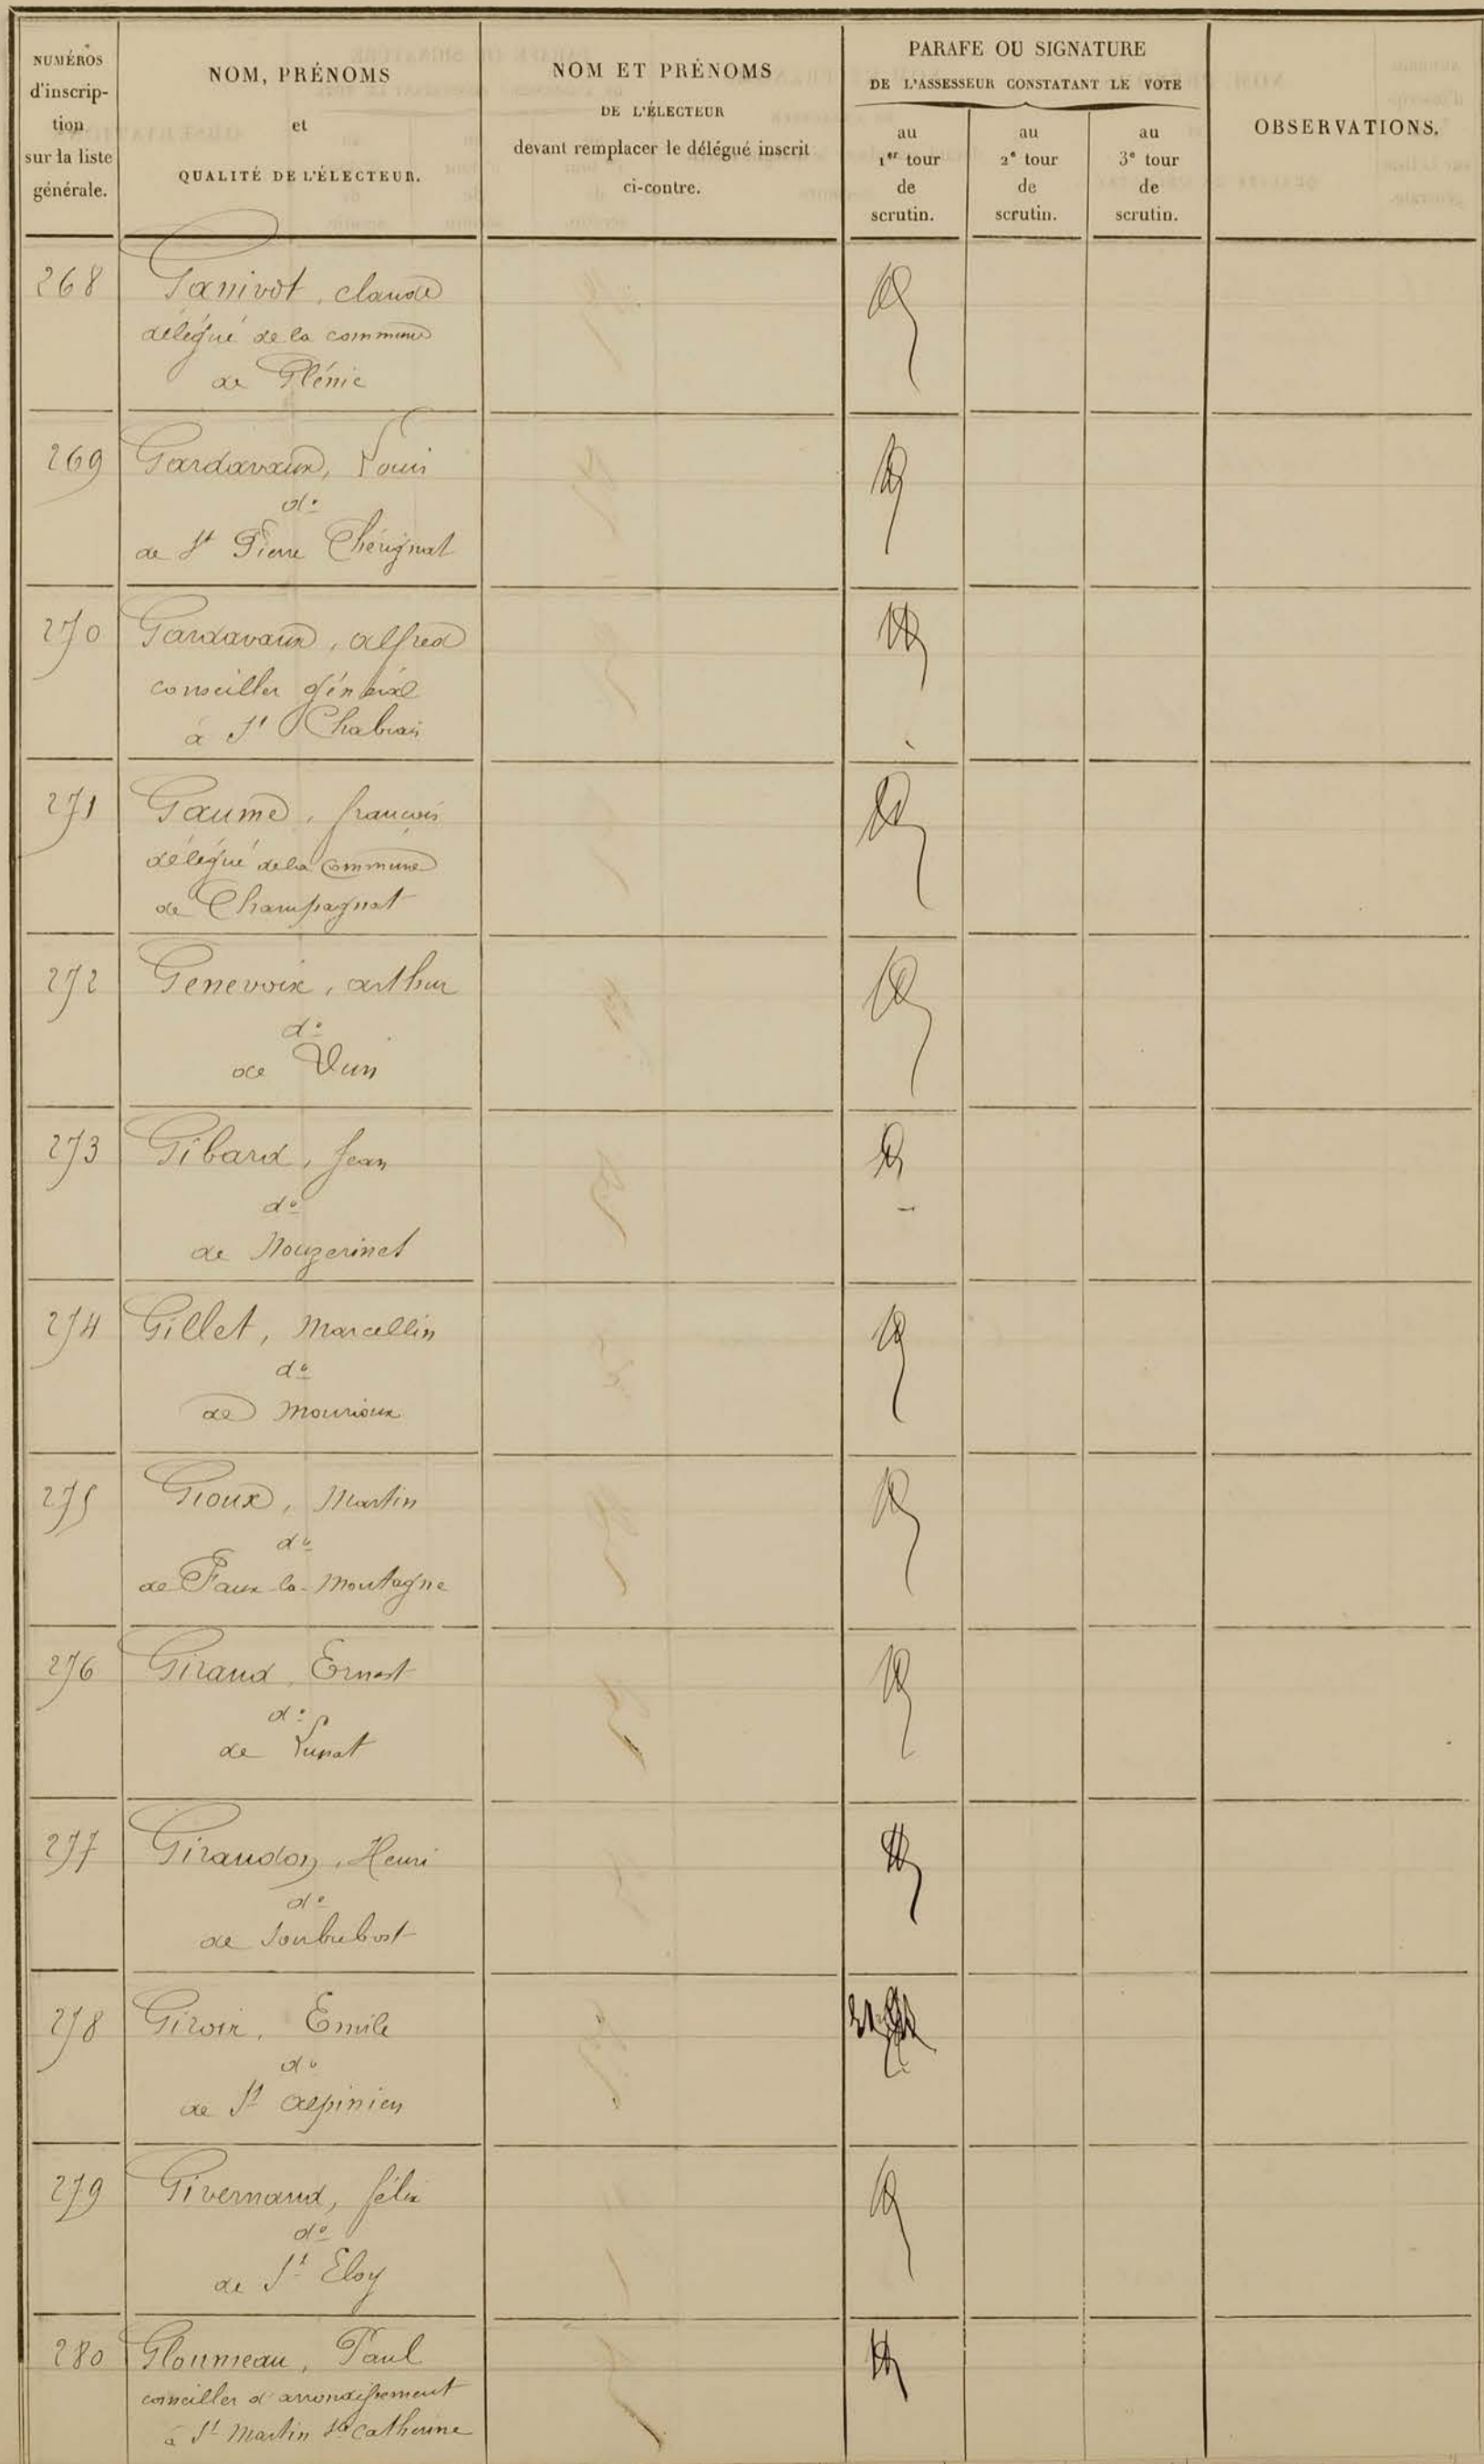 NUMÉROS
d'inscrip-
tion
sur la liste
générale.
NOM, PRÉNOMS
et
QUALITÉ DE L'ÉLECTEUR.
NOM ET PRÉNOMS
DE L'ÉLECTEUR
devant remplacer le délégué inscrit
ci-contre.
PARAFE OU SIGNATURE
DE L'ASSESSEUR CONSTATANT LE VOTE
au
1er tour
de
scrutin.
au
2e tour
de
scrutin.
au
3e tour
de
scrutin.
OBSERVATIONS.
268 Ganivot, claude
délégué de la commune
de Glénic
269 Gardavaud, Louis
do
de St Pierre Chérignat
270 Gardavaud, alfred
conseiller général
à St Chabrais
271 Gaume, françois
délégué de la Commune
de Champagnat
272 Genevoix, arthur
do
de Dun
273 Gibard, Jean
do
de Nouzerinet
274 Gillet, Marcellin
do
de Mourioux
275 Gioux, Martin
do
de Faux-la-Montagne
276 Giraud, Ernest
do
de Lupat
277 Giraudon, Henri
do
de Soubrebost
278 Giroir, Emile
do
de St alpinien
279 Givernaud, félix
do
de St Eloy
280 Gloumeau, Paul
conseiller d'arrondissement
à St Martin Ste Catherine